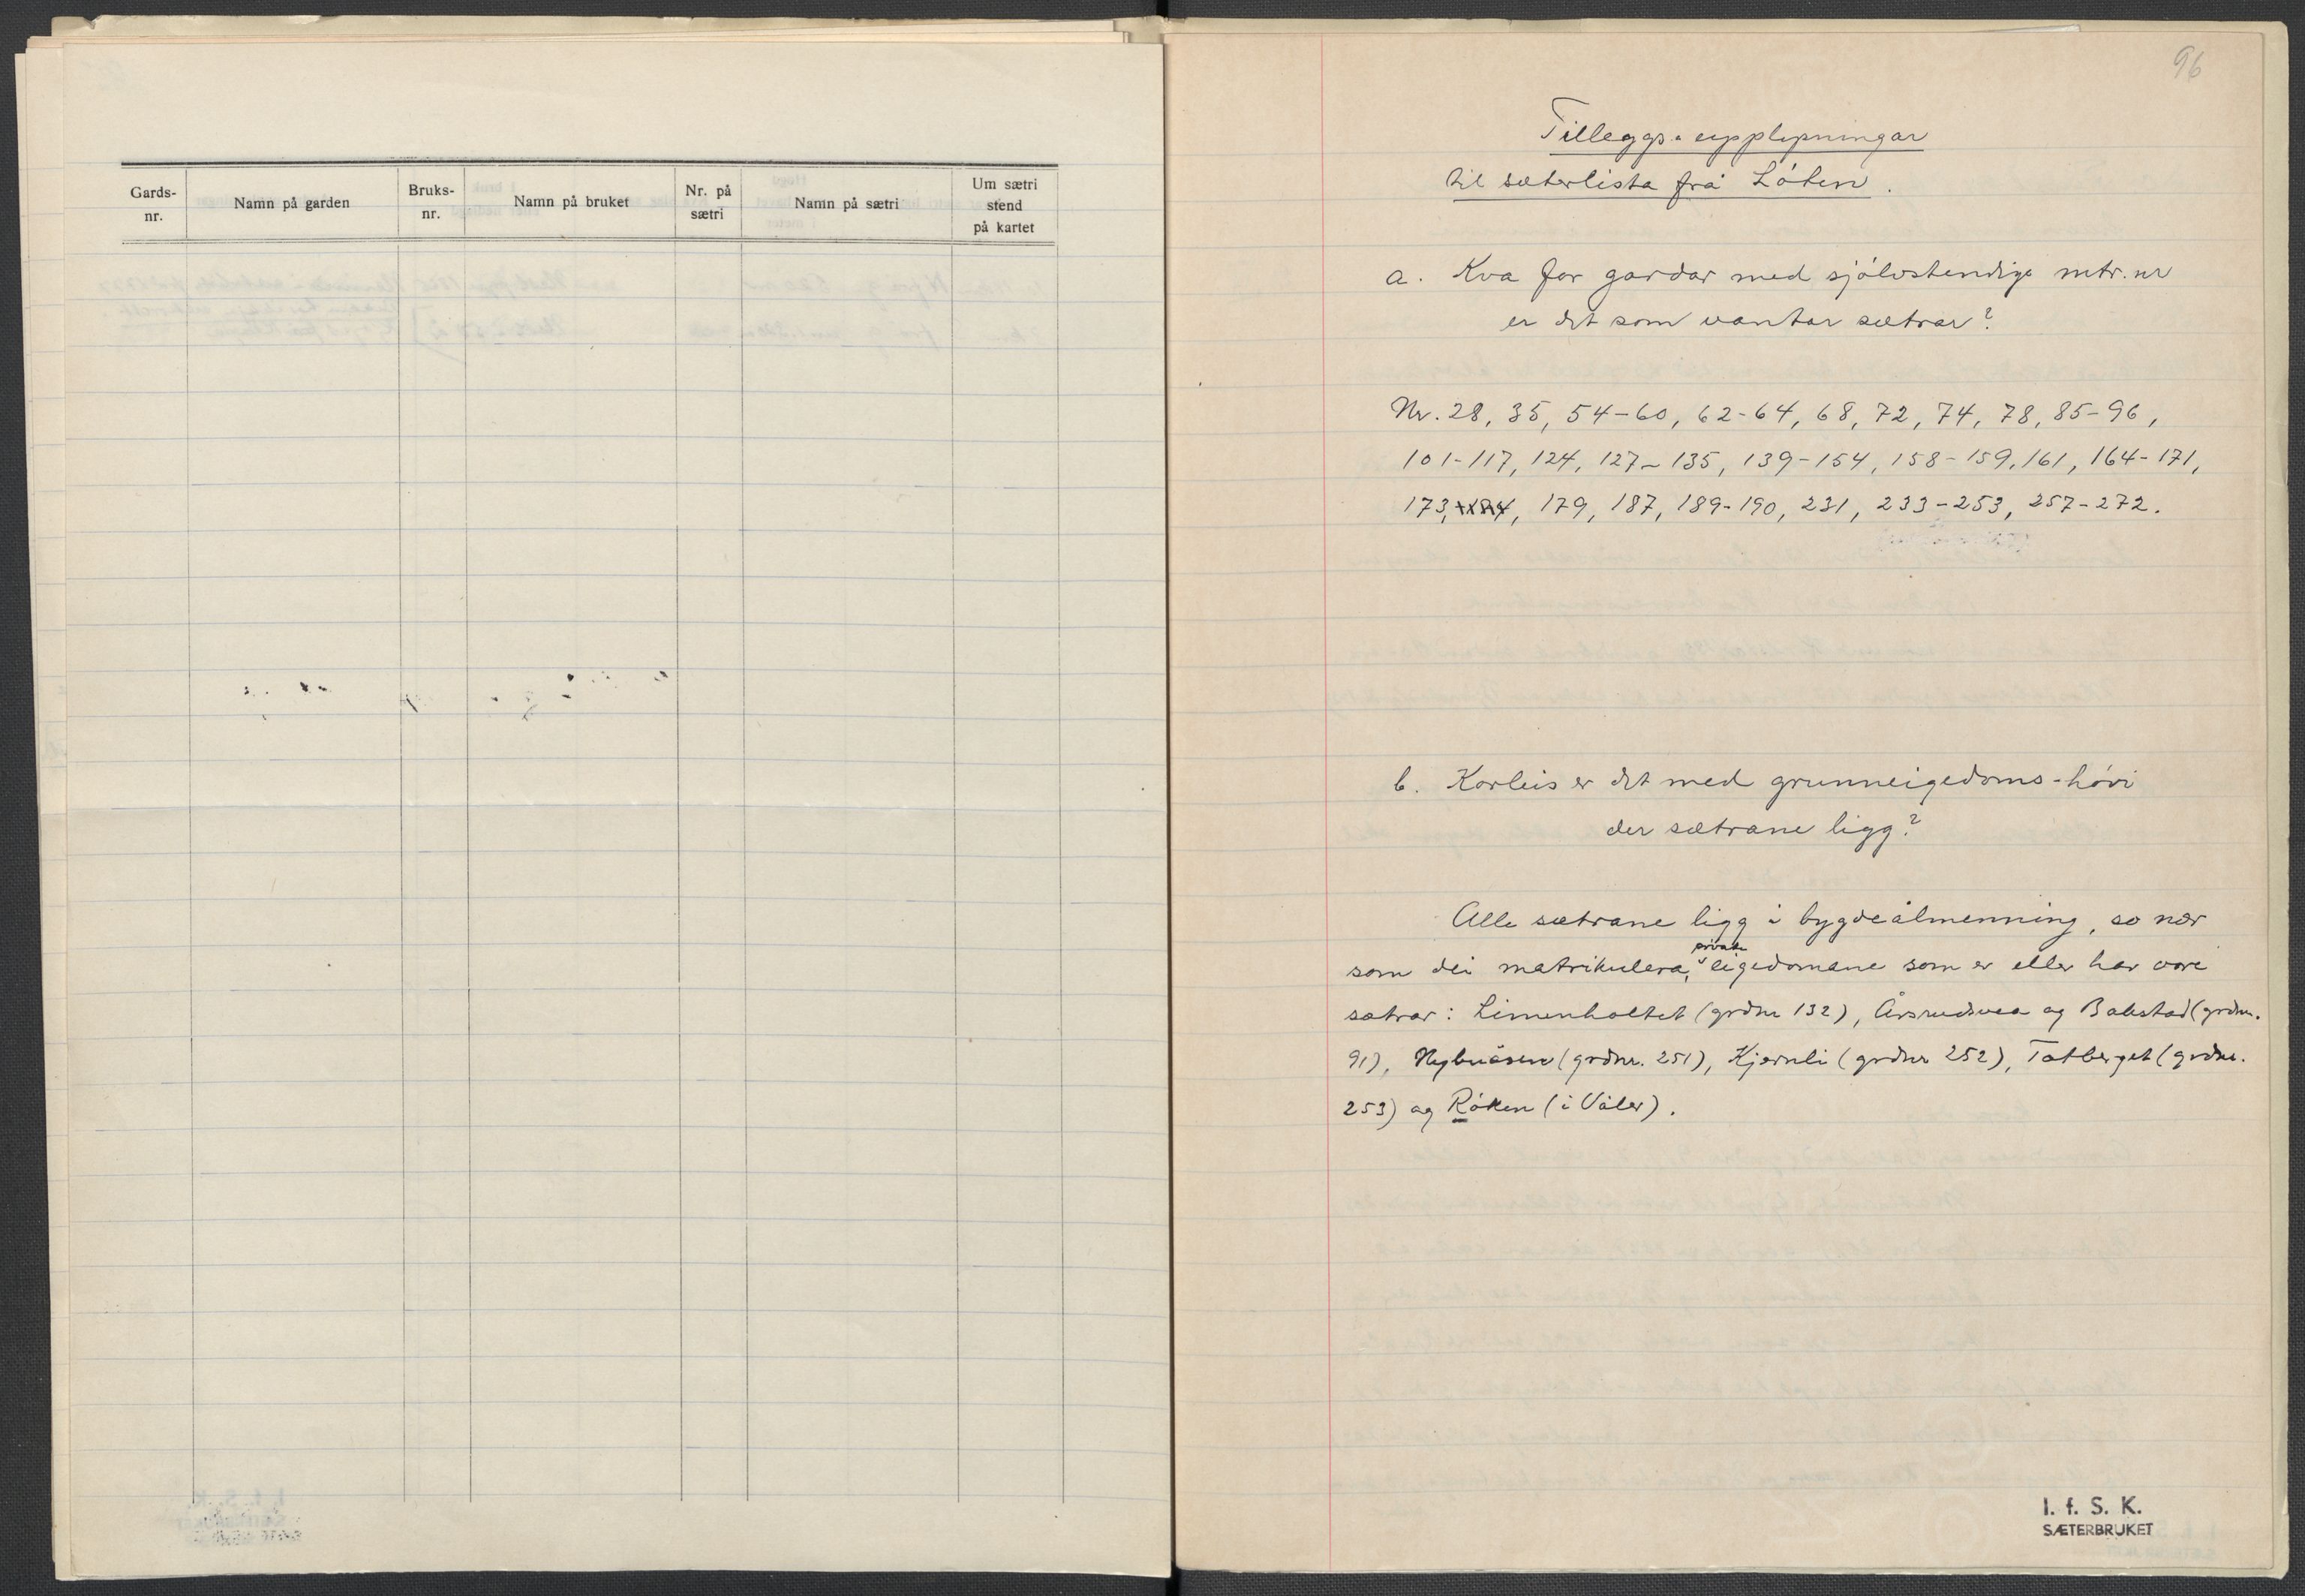 Gards-
nr.
Namn på garden
Bruks-
nr.
Namn på bruket
Nr. på
sætri
Namn på sætri
Um sætri
stend
på kartet
96
Tilleggs-upplysningar
til sæterlista frå Löten.
a. Kva for gardar med sjölvstendige mtr. nr
er det som vantar sætrar?
Nr. 28, 35, 54-60, 62-64, 68, 72, 74, 78, 85-96,
101-117, 124, 127-135, 139-154, 158-159, 161, 164-171,
173, 179, 187, 189-190, 231, 233-253, 257-272.
b. Korleis er det med grunneigedoms-hövi
der sætrane ligg?
Alle sætrane ligg i bygdeålmenning, so nær
som dei matrikulera, private eigedomane som er eller har vore
sætrar: Linnenholtet (grdnr 132), Årsrudsvea og Bakstad (grdnr.
91), Nybuåsen (grdnr. 251), Kjernli (grdnr 252), Totberget (grdnr.
253) og Röken (i Våler).
I. f. S. K.
SÆTERBRUKET